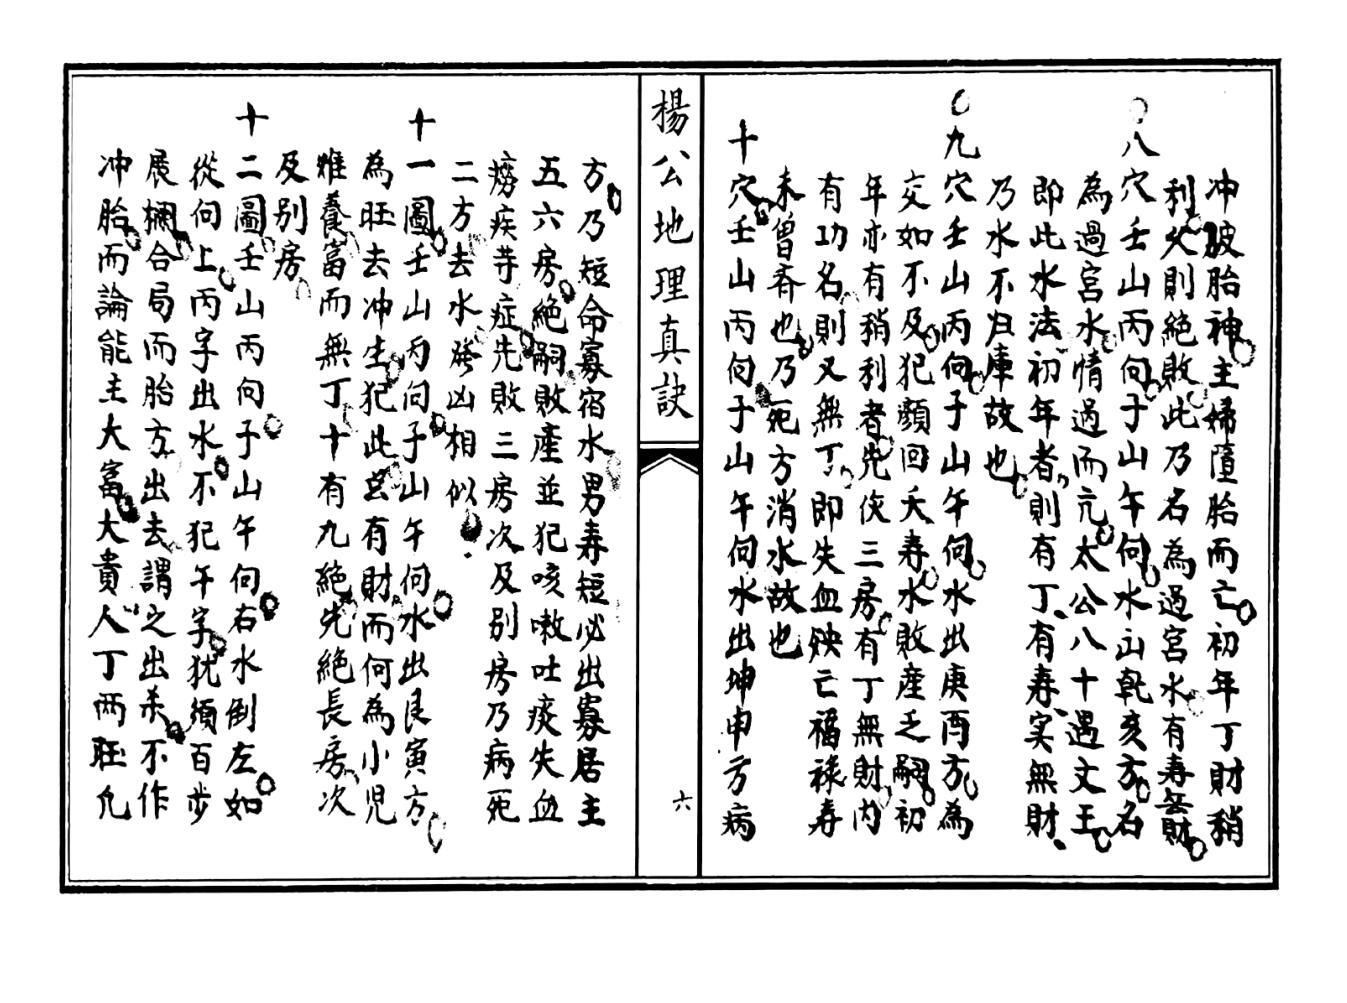 冲破胎神主婦墮胎而亡初年丁財稍
利久則絕敗此乃名為過宮水有壽無財
八穴壬山丙向子山午向水出乾亥方名
為過宮水情過而亢太公八十遇文王
即此水法初年者則有丁有壽实無財
乃水不归庫故也
九穴壬山丙向子山午向水出庚酉方為
交如不及犯顏回夭寿水敗産乏嗣初
年亦有稍利者先伤三房有丁無財内
有功名則又無丁即失血殃亡福祿寿
未曾有也乃死方消水故也
十穴壬山丙向子山午向水出坤申方病
楊公地理真訣
六
方乃短命寡宿水男寿短必出寡居主
五六房絕嗣敗產並犯咳嗽吐痰失血
癆疾等症先敗三房次及別房乃病死
二方去水勝凶相似
十一圖壬山丙向子山午向水出艮寅方
為旺去冲生犯此虽有財而何為小児
难養富而無丁十有九絕先絕長房次
及別房
十二圖壬山丙向子山午向右水倒左如
從向上丙字出水不犯午字犹須百步
展欄合局而胎方出去謂之出杀不作
冲胎而論能主大富大貴人丁两旺凢